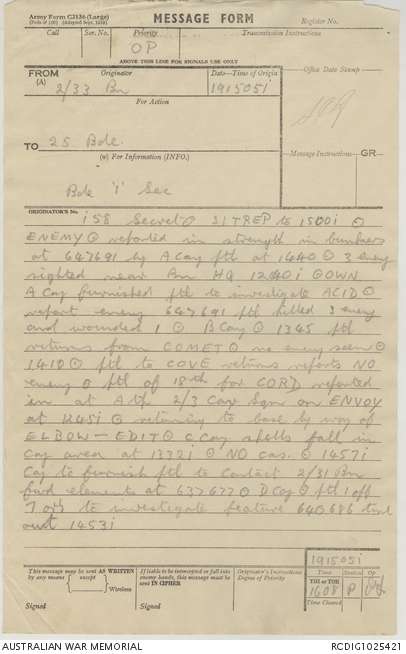 Army Form C2136 (Large)
MESSAGE FORM
Register No.
Call
Ser. No.
Priority
Transmission Instructions
OP
ABOVE THIS LINE FOR SIGNALS USE ONLY
FROM
(A)
Originator
Date—Time of Origin
Office Date Stamp
2/33 Bn
191505i
For Action
TO
25 Bde
(w) For Information (INFO.)
Message Instructions
GR
Bde 'I' Sec
ORIGINATOR'S No.
i58 Secret ⊙ SITREP to 1500i ⊙
ENEMY ⊙ reported in strength in bunkers
at 647691 by A Coy ptl at 1440 ⊙ 3 enemy
sighted near Bn HQ 1240i ⊙ OWN
A Coy furnished ptl to investigate ACID ⊙
report enemy 647691 ptl killed 3 enemy
and wounded 1 ⊙ B Coy ⊙ 1345 ptl
returns from COMET ⊙ no enemy seen ⊙
1410 ⊙ ptl to COVE returns reports NO
enemy ⊙ ptl of 18th for CORD reported
in at A tp 2/3 Cav Sqn on ENVOY
at 1245i ⊙ returning to base by way of
ELBOW — EDIT ⊙ C Coy shells fall in
Coy area at ⊙ NO cas. ⊙ 1457i
Coy to furnish ptl to contact 2/31 Bn
fwd elements at 637677 ⊙ D Coy ⊙ ptl 1 off
7 ORs to investigate feature 640686 time
out 1453i
This message may be sent AS WRITTEN
by any means
(except
)
Wireless
Signed
If liable to be intercepted or fall into
enemy hands, this message must be
sent IN CIPHER
Signed
Originator's Instructions
Degree of Priority
191505i
Time
System
Op
THI or TOR
1608
P
Time Cleared
AUSTRALIAN WAR MEMORIAL
RCDIG1025421